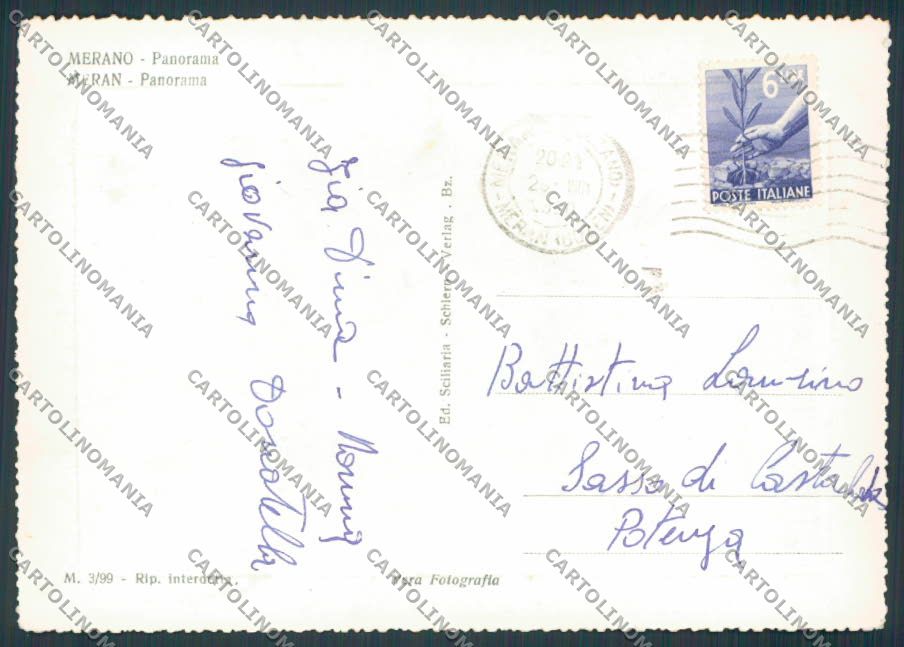 MERANO - Panorama
MERAN - Panorama
6
POSTE ITALIANE
20-21
MERAN
Zia Dina - Nonna
Giovanna Donatella
Ed. Sciliaria - Schlern-Verlag . Bz.
Battistina
Sasso di Castalda
Potenza
M. 3/99 - Rip. interdetta.
Vera Fotografia
CARTOLINOMANIA